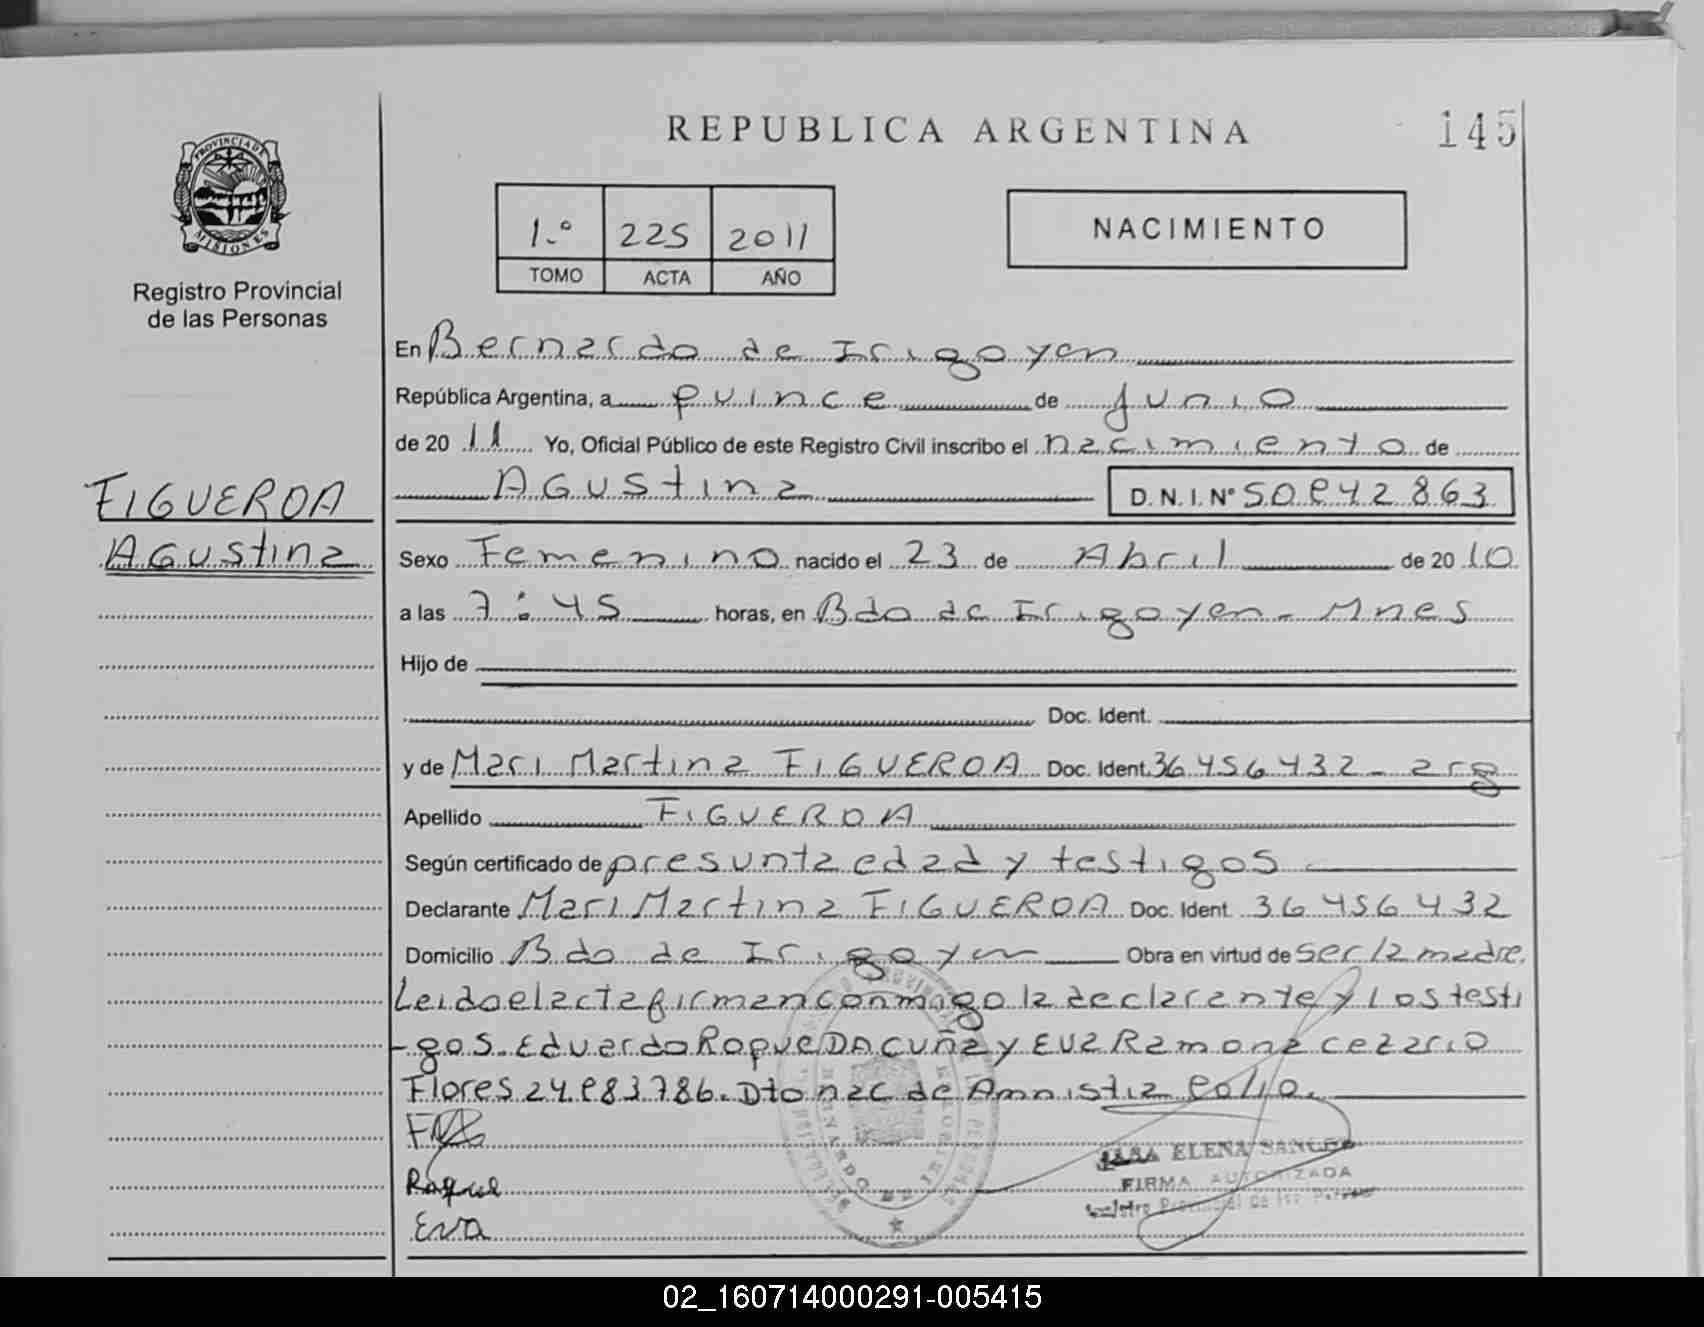 REPUBLICA ARGENTINA
145
PROVINCIA DE MISIONES
Registro Provincial
de las Personas
1.º 225 2011
TOMO ACTA AÑO
NACIMIENTO
En Bernardo de Irigoyen
República Argentina, a quince de junio
de 20 11 Yo, Oficial Público de este Registro Civil inscribo el nacimiento de
Agustina D.N.I. Nº 50.842.863
FIGUEROA
Agustina
Sexo Femenino nacido el 23 de Abril de 20 10
a las 7:45 horas, en Bdo de Irigoyen - Mnes
Hijo de
Doc. Ident.
y de Mari Martina FIGUEROA Doc. Ident. 36456432 - arg
Apellido FIGUEROA
Según certificado de presunta edad y testigos
Declarante Mari Martina FIGUEROA Doc. Ident. 36456432
Domicilio Bdo de Irigoyen Obra en virtud de ser la madre.
Leido el acta firman conmigo la declarante y los testi
-gos. Eduardo Roque DA CUÑA y EVA Ramona cezario
Flores 24.883.786. Dto nac de Amnistia
Roque
Eva
ELENA
FIRMA AUTORIZADA
Registro Provincial de las Personas
02_160714000291-005415